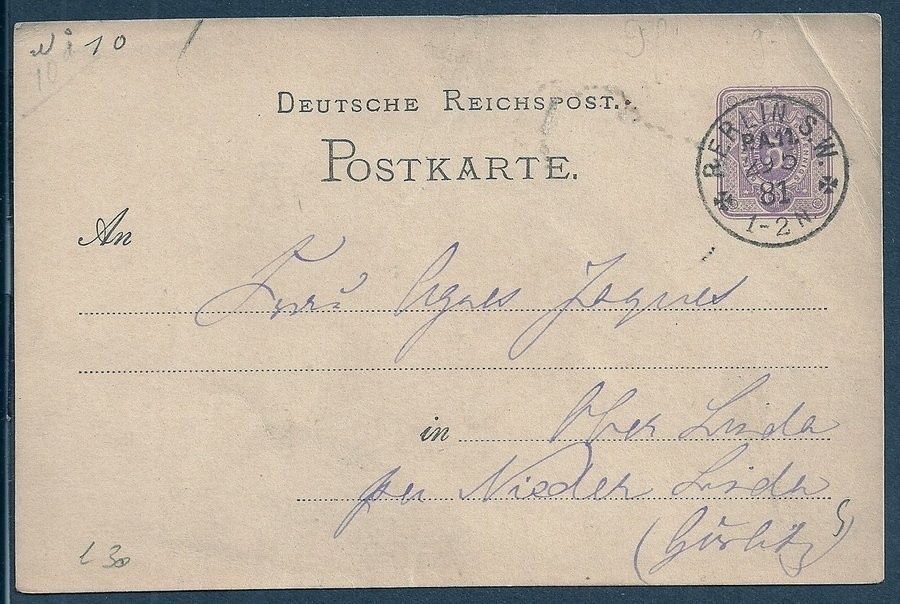 10
DEUTSCHE REICHSPOST.
POSTKARTE.
BERLIN. S.W.
P.A.11.
81
1-2N.
An
Frau Agnes Jaques
in Ober Linda
per Nieder Linda
(Görlitz)
30